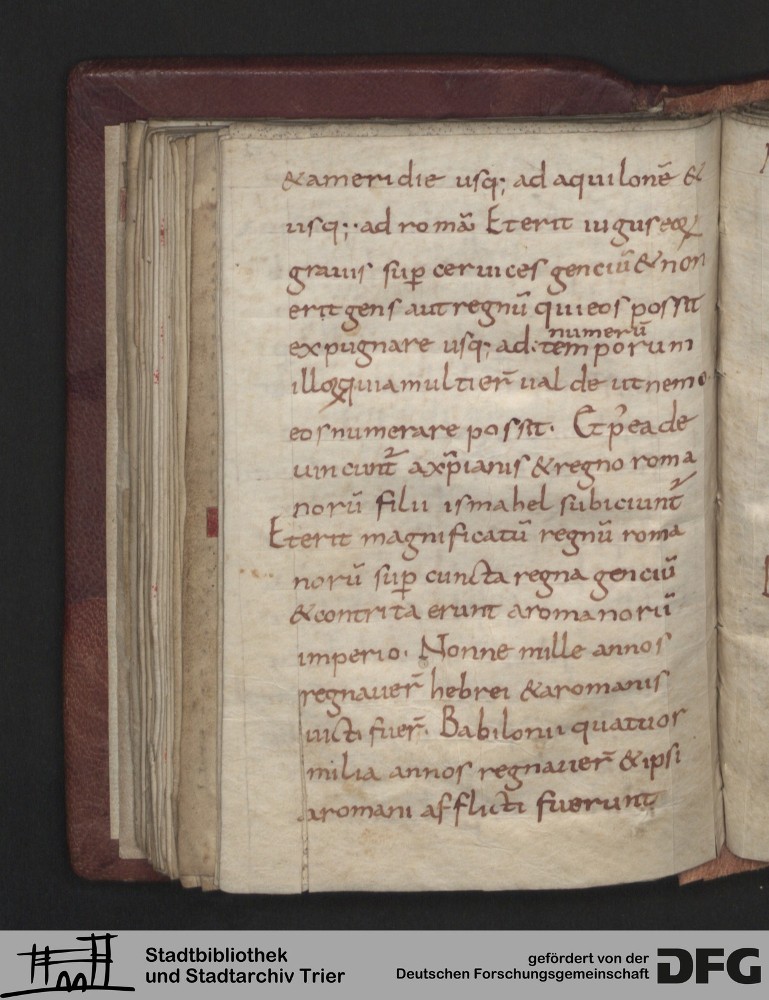 &ameridie usq; ad aquilonē &
usq; ad romā Et erit iugus eoꝝ
grauis sup̄ ceruices genciū & non
erit gens aut regnū qui eos possit
numerū
expugnare usq; ad temporum
illoꝝ quia multi er̄ ualde ut nemo
eos numerare possit. Et p̄ea de
uincunt᷑ a xp̄ianis & regno roma
norū filii ismahel subiciunt᷑
Et erit magnificatū regnū roma
norū sup̄ cuncta regna genciū
& contrita erunt a romanorū
imperio. Nonne mille annos
regnauer̄ hebrei & a romanis
uicti fuer̄. Babilonii quatuor
milia annos regnauer̄ & ipsi
a romani afflicti fuerunt
Stadtbibliothek
und Stadtarchiv Trier
gefördert von der
Deutschen Forschungsgemeinschaft
DFG